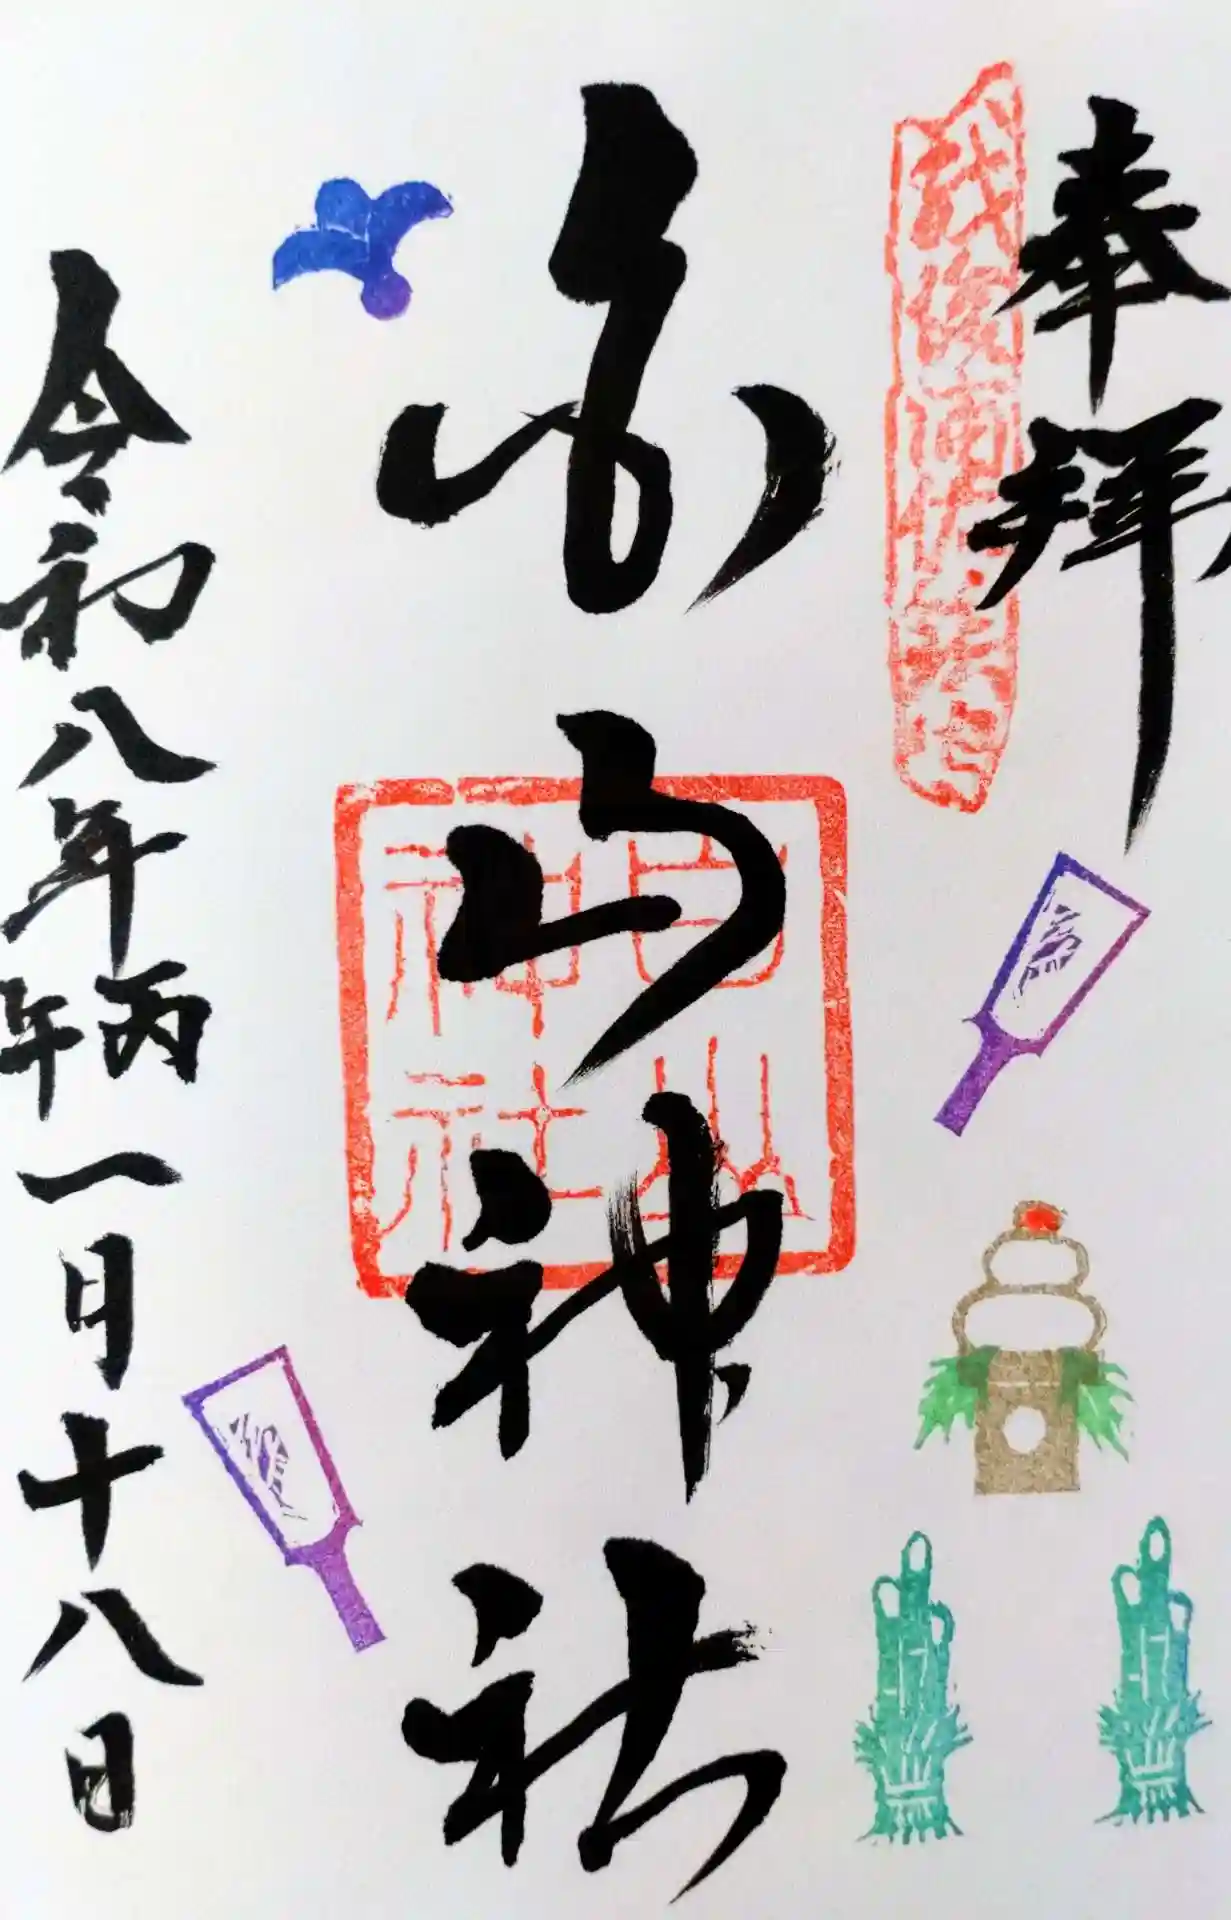 奉拝
白山神社
令和八年丙午一月十八日
白山
神社